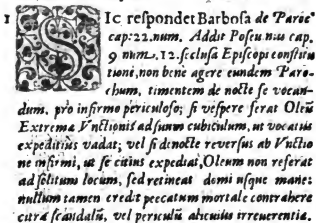 1 SIc respondet Barbosa de Paroc
cap: 22. num. Addit Posseuinus cap.
9 num. 12. seclusa Episcopi constitu
tioni, non benè agere eundem Paro-
chum, timentem de nocte se vocan-
dum, prò infirmo periculoso; si vespere ferat Oleũ
Extremæ Vnctionis ad suum cubiculum, ut vocatus
expeditius vadat; vel si de nocte reversus ab Vnctio
ne infirmi, ut se citius expediat, Oleum non referat
ad solitum locum, sed retineat domi usque mane:
nullum tamen credit peccatum mortale contrahere
citrà scandalũ, vel periculũ alicuius irreuerentiæ.